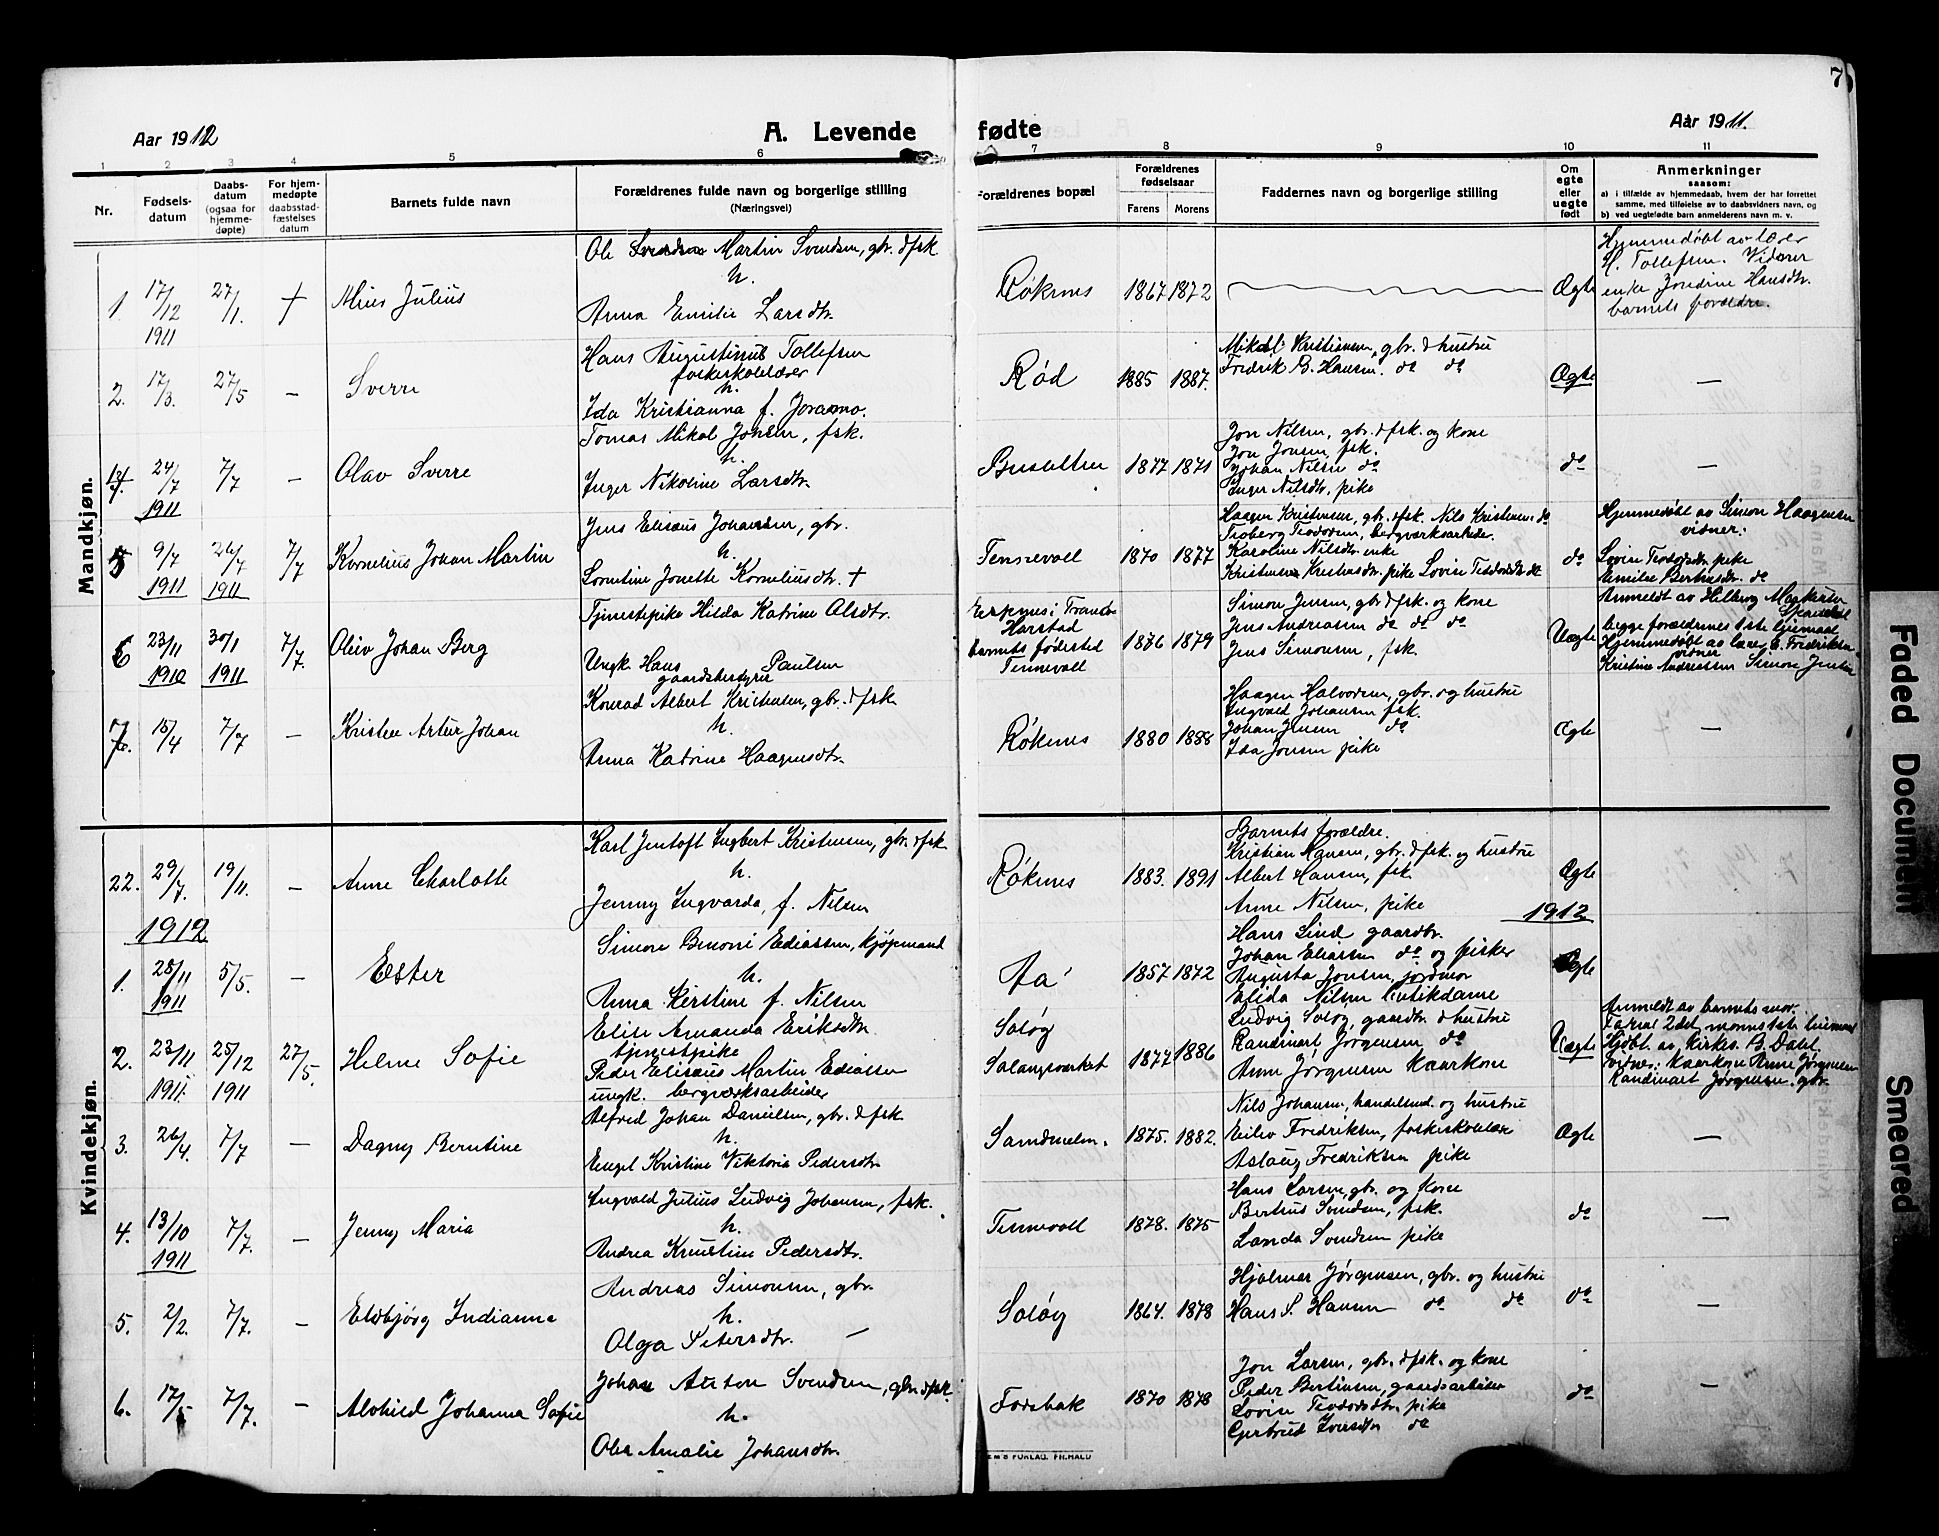 7
Aar 1912
A. Levende
fødte
Aar 1911.
1 2 3 4 5 6 7 8 9 10 11
Nr.
Fødsels-
datum
Daabs-
datum
(ogsaa for
hjemme-
døpte)
For hjem-
medøpte
daabsstad-
fæstelses
datum
Barnets fulde navn
Forældrenes fulde navn og borgerlige stilling
(Næringsvei)
Forældrenes bopæl
Forældrenes
fødselsaar
Farens Morens
Faddernes navn og borgerlige stilling
Om
egte
eller
uegte
født
Anmerkninger
saasom:
a) i tilfælde av hjemmedaab, hvem der har forrettet
samme, med tilføielse av to daabsvidners navn, og
b) ved uegtefødte barn anmelderens navn m. v.
Mandkjøn.
1. 17/12 1911 27/1. †
Ole Martin Svendsen, gbr. & fsk
h.
Anna Emilie Larsdtr.
Røkenes 1867 1872
Ægte
Hjemmedøbt av lærer
H. Tollefsen. Vidner
enke Jordine Hansdtr.
barnets forældre.
2. 17/3. 27/5 —
Sverre
Hans Augustinus Tollefsen
folkeskolelærer
h.
Ida Kristianna f. Joramo.
Rød 1885 1887.
Mikal Kristiansen, gbr. & hustru
Fredrik B. Hansen do do
Ægte
—
24/7 1911 7/7 —
Olav Sverre
Tomas Mikal Jonsen, fsk.
h.
Inger Nikoline Larsdtr.
1877 1871
Jon Nilsen, gbr. & fsk. og kone
Jon Jonsen, fsk.
Johan Nilsen do
Inger Nilsdtr. pike
do
—
5 9/7 1911 26/7 1911 7/7
Kornelius Johan Martin
Jens Elisæus Johansen, gbr.
h.
Lorntine Jonette Korneliusdtr. †
Tennevoll 1870 1877
Haagen Kristensen, gbr. & fsk. Nils Kristensen do
Toberg Teodorsen, bergverksarbeider.
Karoline Nilsdtr. enke
Kristense Kristensdtr. pike Lovise Teodorsdtr. do
do
Hjemmedøbt av Simon Haagensen
vidner:
Lovise Teodorsdtr. pike
Emilie Bertheusdtr. do
6 23/11 1910 30/1 1911 7/7.
Oliv Johan Berg
Tjenestepike Hilda Katrine Olsdtr.
Ungk. Hans Paulsen
gaardsbestyrer
Harstad
barnets fødested
Tennevoll
1876 1879
Simon Jensen, gbr & fsk. og kone
Jens Andreassen do do do
Jens Simonsen, fsk.
Uægte
begge forældrenes 1ste leiemaal
Hjemmedøbt av lærer E. Fredriksen
vidner
Kristine Andreassen Simon Jensen
7 15/4 7/7 —
Kristen Artur Johan
Konrad Albert Kristensen, gbr. & fsk
h.
Anna Katrine Haagensdtr.
Røkenes 1880 1888
Haagen Halvorsen, gbr. og hustru
Ingvald Johansen fsk.
Johan Jensen do
Ida Jonsen pike
Ægte
—
Kvindekjøn.
22. 29/7. 19/11. —
Anne Charlotte
Karl Jentoft Ingbert Kristensen, gbr. & fsk
h.
Jenny Ingvarda, f. Nilsen
Røkenes 1883. 1891
Barnets forældre.
Kristian Hansen, gbr. & fsk. og hustru
Albert Hansen, fsk.
Anne Nilsen, pike
Ægte
1912
1912
1. 28/11 1911 5/5. —
Ester
Simon Benoni Ediassen, kjøpmand
h.
Anna Kerstine f. Nilsen
Aa 1857 1872
Hans Lind gaardbr.
Johan Eliassen do og fisker
Augusta Jonsen, jordmor
Elida Nilsen butikdame
Ægte
2. 23/11 1911. 25/12 1911 27/5.
Helene Sofie
Elise Amanda Eriksdtr.
tjenestpike
Peder Elisæus Martin Ediassen
ungk. bergværksarbeider
Soløy
Salangsverket
1877 1886
Ludvig Soløy, gaardbr. & hustru
Randinart Jørgensen do
Anne Jørgensen kaarkone
Uægte
Anmeldt av barnets mor.
Hjdøbt. av kirkes. B. Dahl.
vidner: kaarkone Anne Jørgensen
Randinart Jørgensen, gbr.
3. 26/4. 7/7 —
Dagny Berntine
Alfred Johan Danielsen, gbr. & fsk.
h.
Engel Kristine Viktoria Pedersdtr.
1875. 1882.
Nils Johansen, handelsmd. og hustru
Eilev Fredriksen, folkeskolelær
Aslaug Fredriksen pike
Ægte
—
4. 13/10 1911 7/7. —
Jenny Maria
Ingvald Julius Ludvig Johansen, fsk.
h.
Andrea Kristine Pedersdtr.
Tennevoll 1878. 1875
Hans Larsen, gbr. og kone
Bertheus Svendsen, fsk.
Landa Svendsen pike
do
—
5. 2/2. 7/7. —
Eldbjørg Indianna
Andreas Simonsen, gbr.
h.
Olga Petersdtr. —
Soløy 1864. 1878
Hjalmar Jørgensen, gbr. og hustru
Hans S. Hansen do do
do
—
6. 17/5 7/7. —
Alvhild Johanna Sofie
Johan Anton Svendsen, gbr & fsk.
h.
Oline Amalie Johansdtr.
Forsbak 1870 1878
Jon Larsen, gbr. & fsk. og kone
Peder Berntinsen, gaardsarbeider
Lovise Teodorsdtr. pike
Gjertrud Iversdtr do
do
—
FORLAG. FR.HALD
Faded Document
Smeared